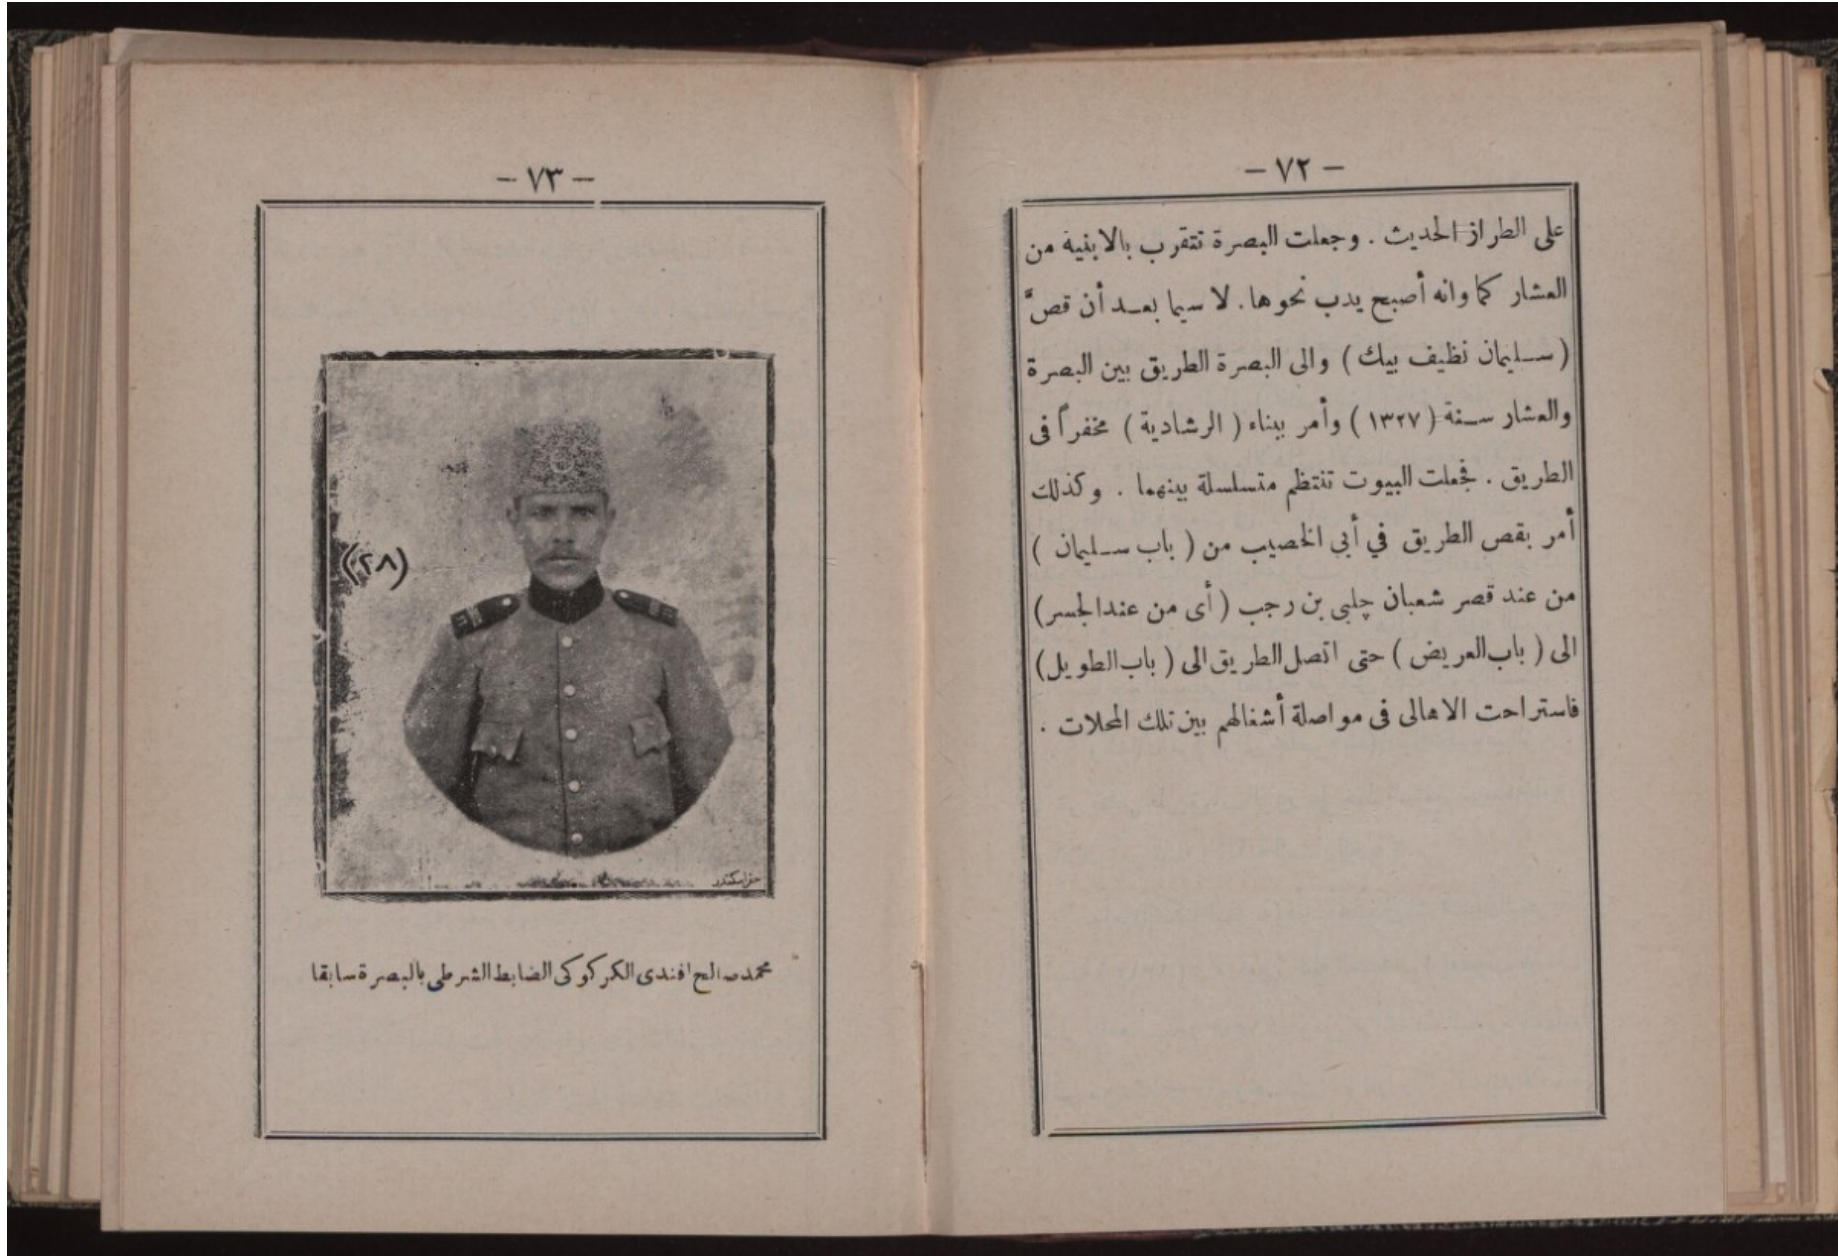 — ٧٢ —
على الطراز الحديث . وجعلت البصرة تتقرب بالابنية من
العشار كما وانه أصبح يدب نحوها . لا سيما بعد أن قصَّ
( سليمان نظيف بيك ) والى البصرة الطريق بين البصرة
والعشار سنة ( ١٣٢٧ ) وأمر ببناء ( الرشادية ) مخفراً فى
الطريق . فجعلت البيوت تنتظم متسلسلة بينهما . وكذلك
أمر بقص الطريق في أبي الخصيب من ( باب سليمان )
من عند قصر شعبان چلبى بن رجب ( أى من عند الجسر )
الى ( باب العريض ) حتى اتصل الطريق الى ( باب الطويل )
فاستراحت الاهالى فى مواصلة أشغالهم بين تلك المحلات .
— ٧٣ —
(٢٨)
حفر اسكندر
محمد صالح افندى الكركوكى الضابط الشرطى بالبصرة سابقا